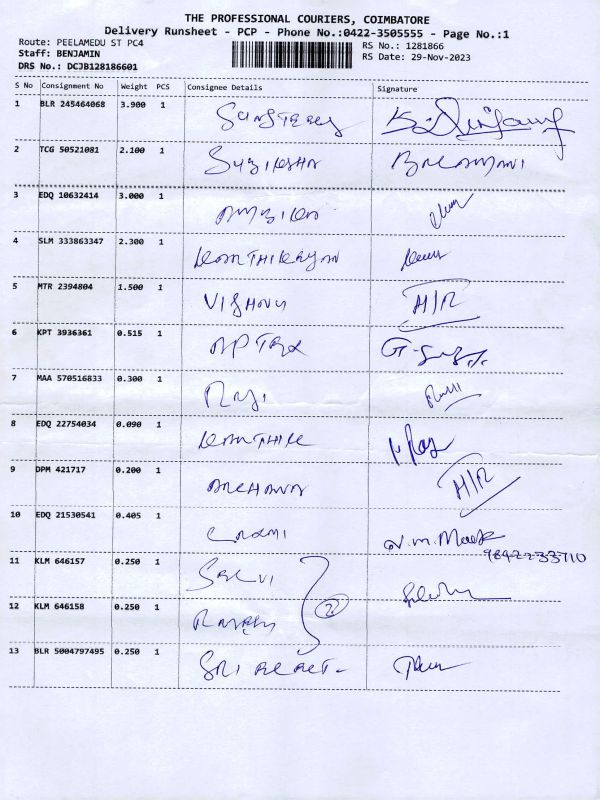 THE PROFESSIONAL COURIERS, COIMBATORE
Delivery Runsheet - PCP - Phone No.:0422-3505555 - Page No.:1
Route: PEELAMEDU ST PC4
RS No.: 1281866
Staff: BENJAMIN
RS Date: 29-Nov-2023
DRS No.: DCJB128186601
S No Consignment No Weight PCS Consignee Details Signature
1 BLR 245464068 3.900 1
2 TCG 50521081 2.100 1 SUBIKSHA BALAMANI
3 EDQ 10632414 3.000 1 AMBIKA
4 SLM 333863347 2.300 1 KARTHIKEYAN
5 MTR 2394804 1.500 1 VISHNU H/R
6 KPT 3936361 0.515 1
7 MAA 570516833 0.300 1 RAJI
8 EDQ 22754034 0.090 1 KARTHIK
9 DPM 421717 0.200 1 ARCHANA H/R
10 EDQ 21530541 0.405 1 LAXMI
9842233710
11 KLM 646157 0.250 1 SELVI
12 KLM 646158 0.250 1 2
13 BLR 5004797495 0.250 1 SRI